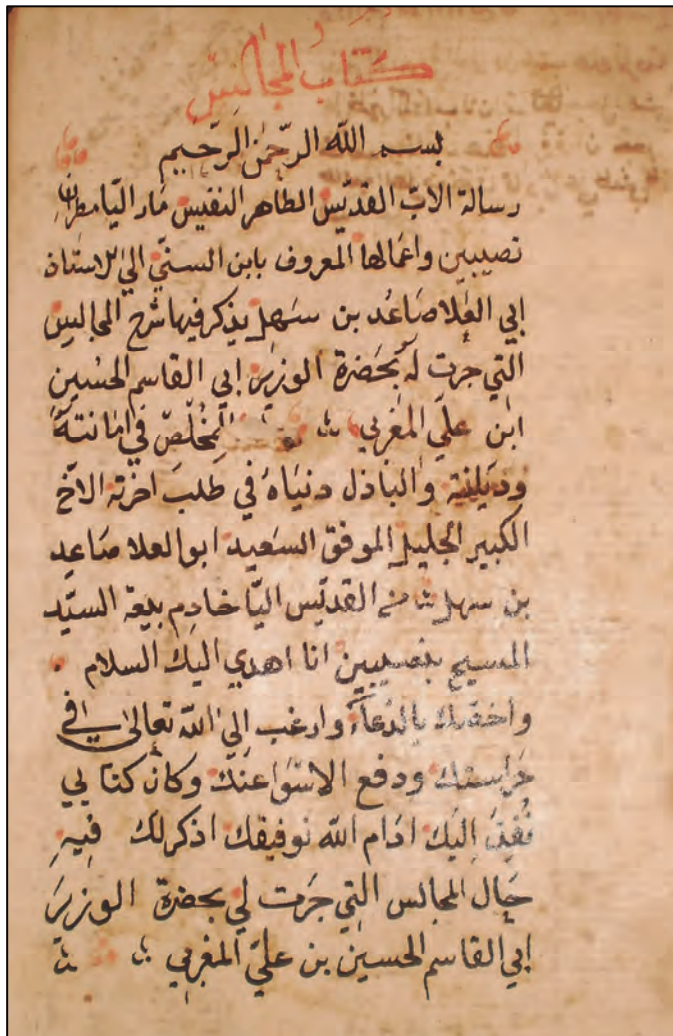 كتاب المجالس
بسم الله الرحمن الرحيم
رسالة الاب القديس الطاهر النفيس مار اليا مطران
نصيبين واعمالها المعروف بابن السنيّ الي الاستاذ
ابي العلا صاعد بن سهل يذكر فيها شرح المجالس
التي جرت له بحضرة الوزير ابي القاسم الحسين
ابن علي المغربي المخلّص في امانته
وديانته والباذل دنياه في طلب اخرته الاخ
الكبير الجليل الموفق السعيد ابو العلا صاعد
بن سهل من القديس اليّا خادم بيعة السيّد
المسيح بنصيبين انا اهدي اليك السلام
واخصّك بالدعآء وارغب الي الله تعالي في
حراستك ودفع الاسوا عنك وكان كتابي
نُفِذَ اليك ادام الله توفيقك اذكر لك فيه
حال المجالس التي جرت لي بحضرة الوزير
ابي القاسم الحسين بن عليّ المغربي